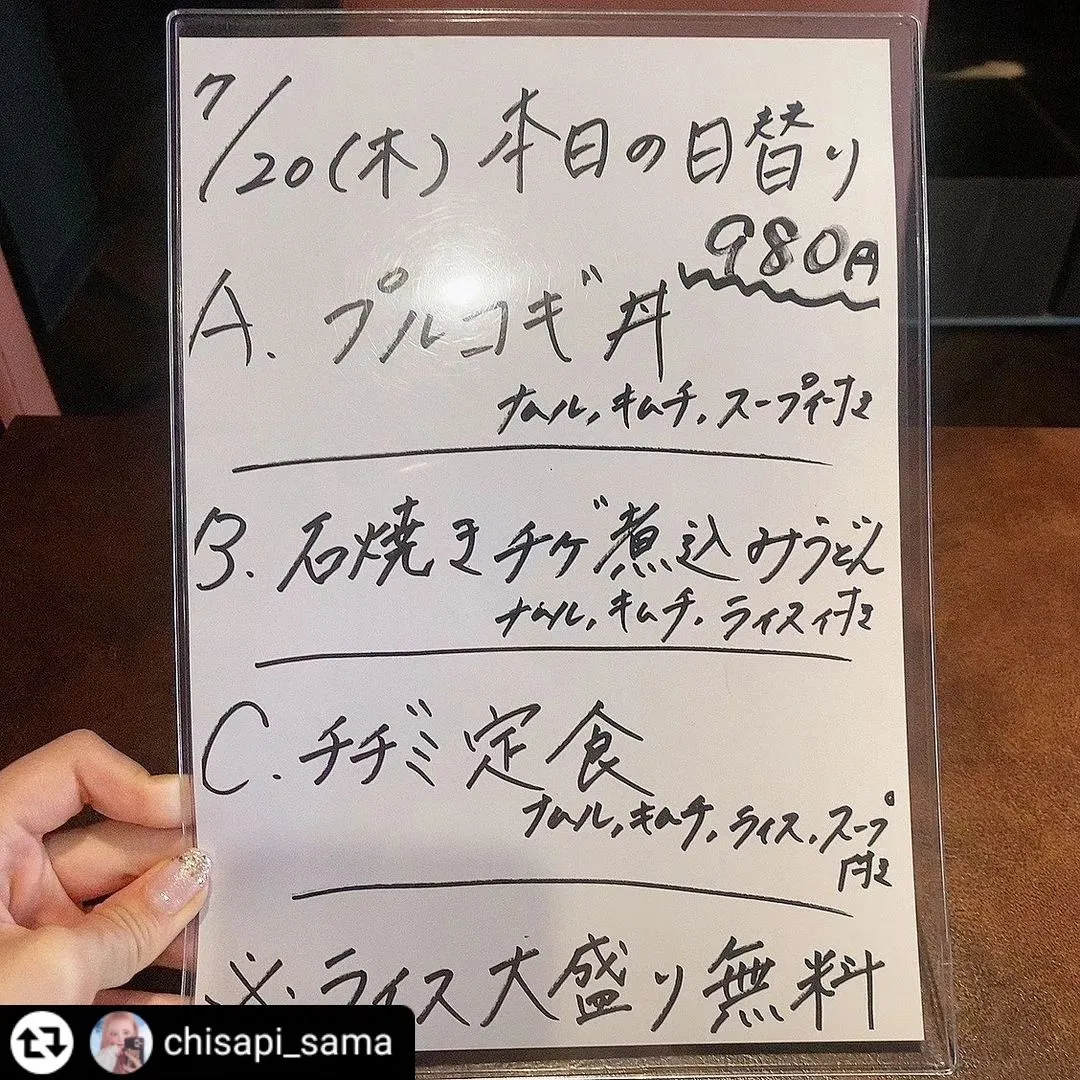 7/20(木) 本日の日替り
980円
A. プルコギ丼
ナムル, キムチ, スープ付き
B. 石焼きチゲ煮込みうどん
ナムル, キムチ, ライス付き
C. チヂミ定食
ナムル, キムチ, ライス, スープ
付き
※. ライス大盛り無料
chisapi_sama